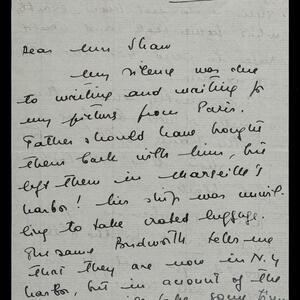 Dear Mrs Shaw
My silence was due
to waiting and waiting for
my pictures from Paris.
Father should have brought
them back with him, but
left them in Marseille's
harbor! his ship was unwil-
ling to take crated luggage.
The same Bridworth tells me
that they are now in N.Y
harbor, but in account of the
take some